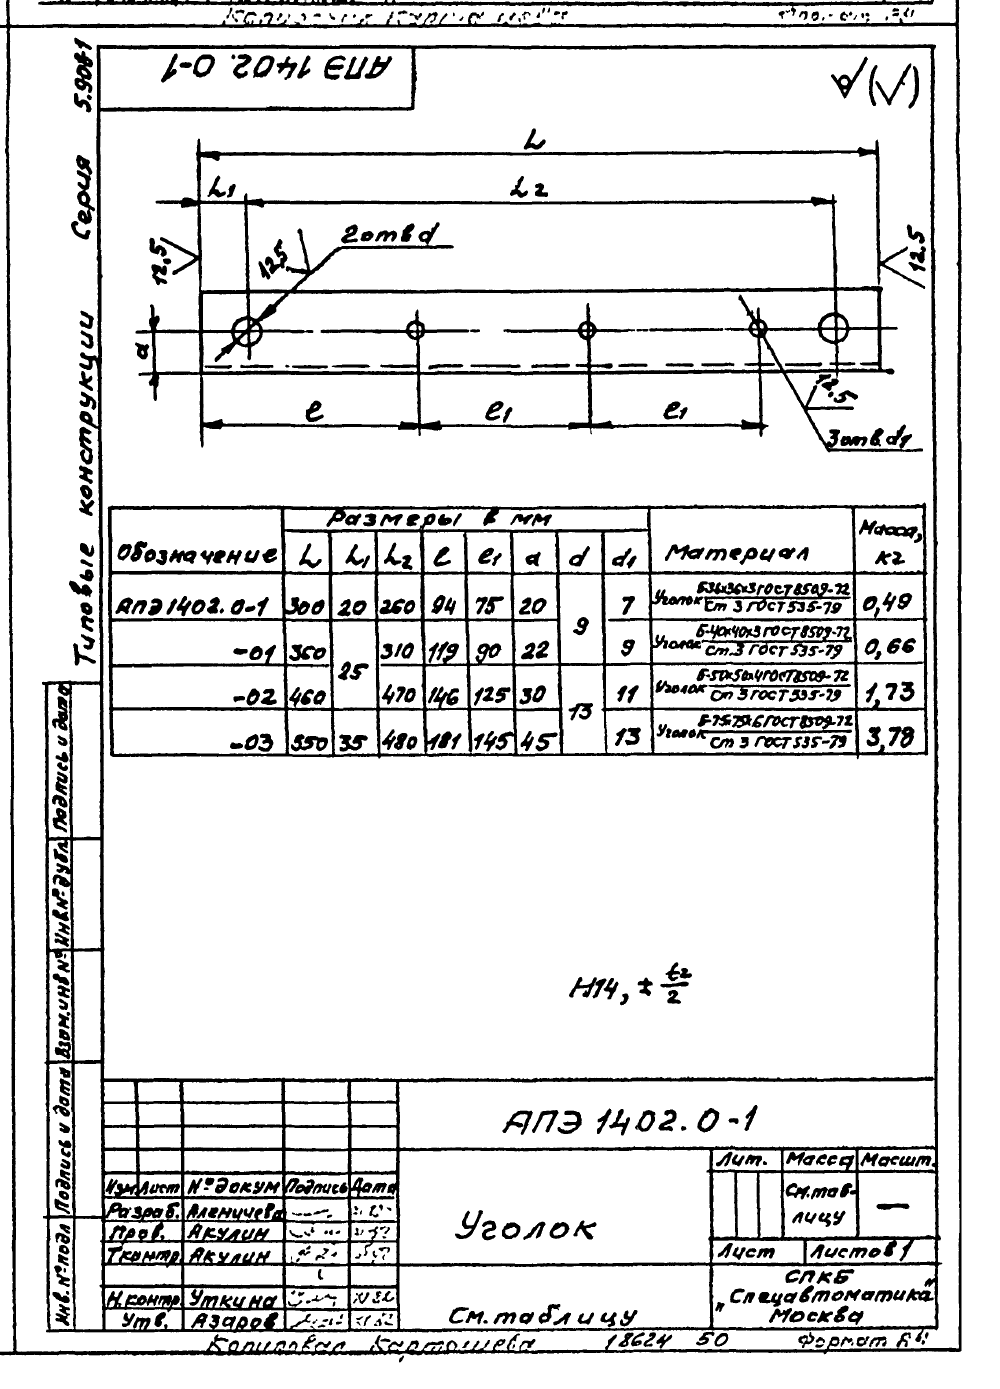 Копировал Карташева Формат А4
АПЭ 1402.0-1
Типовые конструкции Серия 5.908-1
√(√)
L
L1 L2
2 отв d
12,5
12,5
12,5
a
12,5
l l1 l1
3 отв. d1
Обозначение Размеры в мм Материал Масса, кг
L L1 L2 l l1 a d d1
АПЭ 1402.0-1 300 20 260 94 75 20 9 7 Уголок Б-36х36х3 ГОСТ 8509-72 / Ст 3 ГОСТ 535-79 0,49
-01 360 25 310 119 90 22 9 Уголок Б-40х40х3 ГОСТ 8509-72 / Ст.3 ГОСТ 535-79 0,66
-02 460 470 146 125 30 13 11 Уголок Б-50х50х4 ГОСТ 8509-72 / Ст 3 ГОСТ 535-79 1,73
-03 550 35 480 181 145 45 13 Уголок Б-75х75х6 ГОСТ 8509-72 / Ст 3 ГОСТ 535-79 3,78
H14, ± t2/2
Инв. № подл Подпись и дата Взам. инв № Инв. № дубл. Подпись и дата
АПЭ 1402.0-1
Изм Лист № докум Подпись Дата
Разраб. Аленичева
Пров. Акулин
Т.контр. Акулин
Н.контр. Уткина
Утв. Азаров
Уголок
См. таблицу
Лит. Масса Масшт.
См. таб-
лицу
—
Лист Листов 1
СПКБ
„Спецавтоматика"
Москва
Копировал Карташева 18624 50 Формат А4